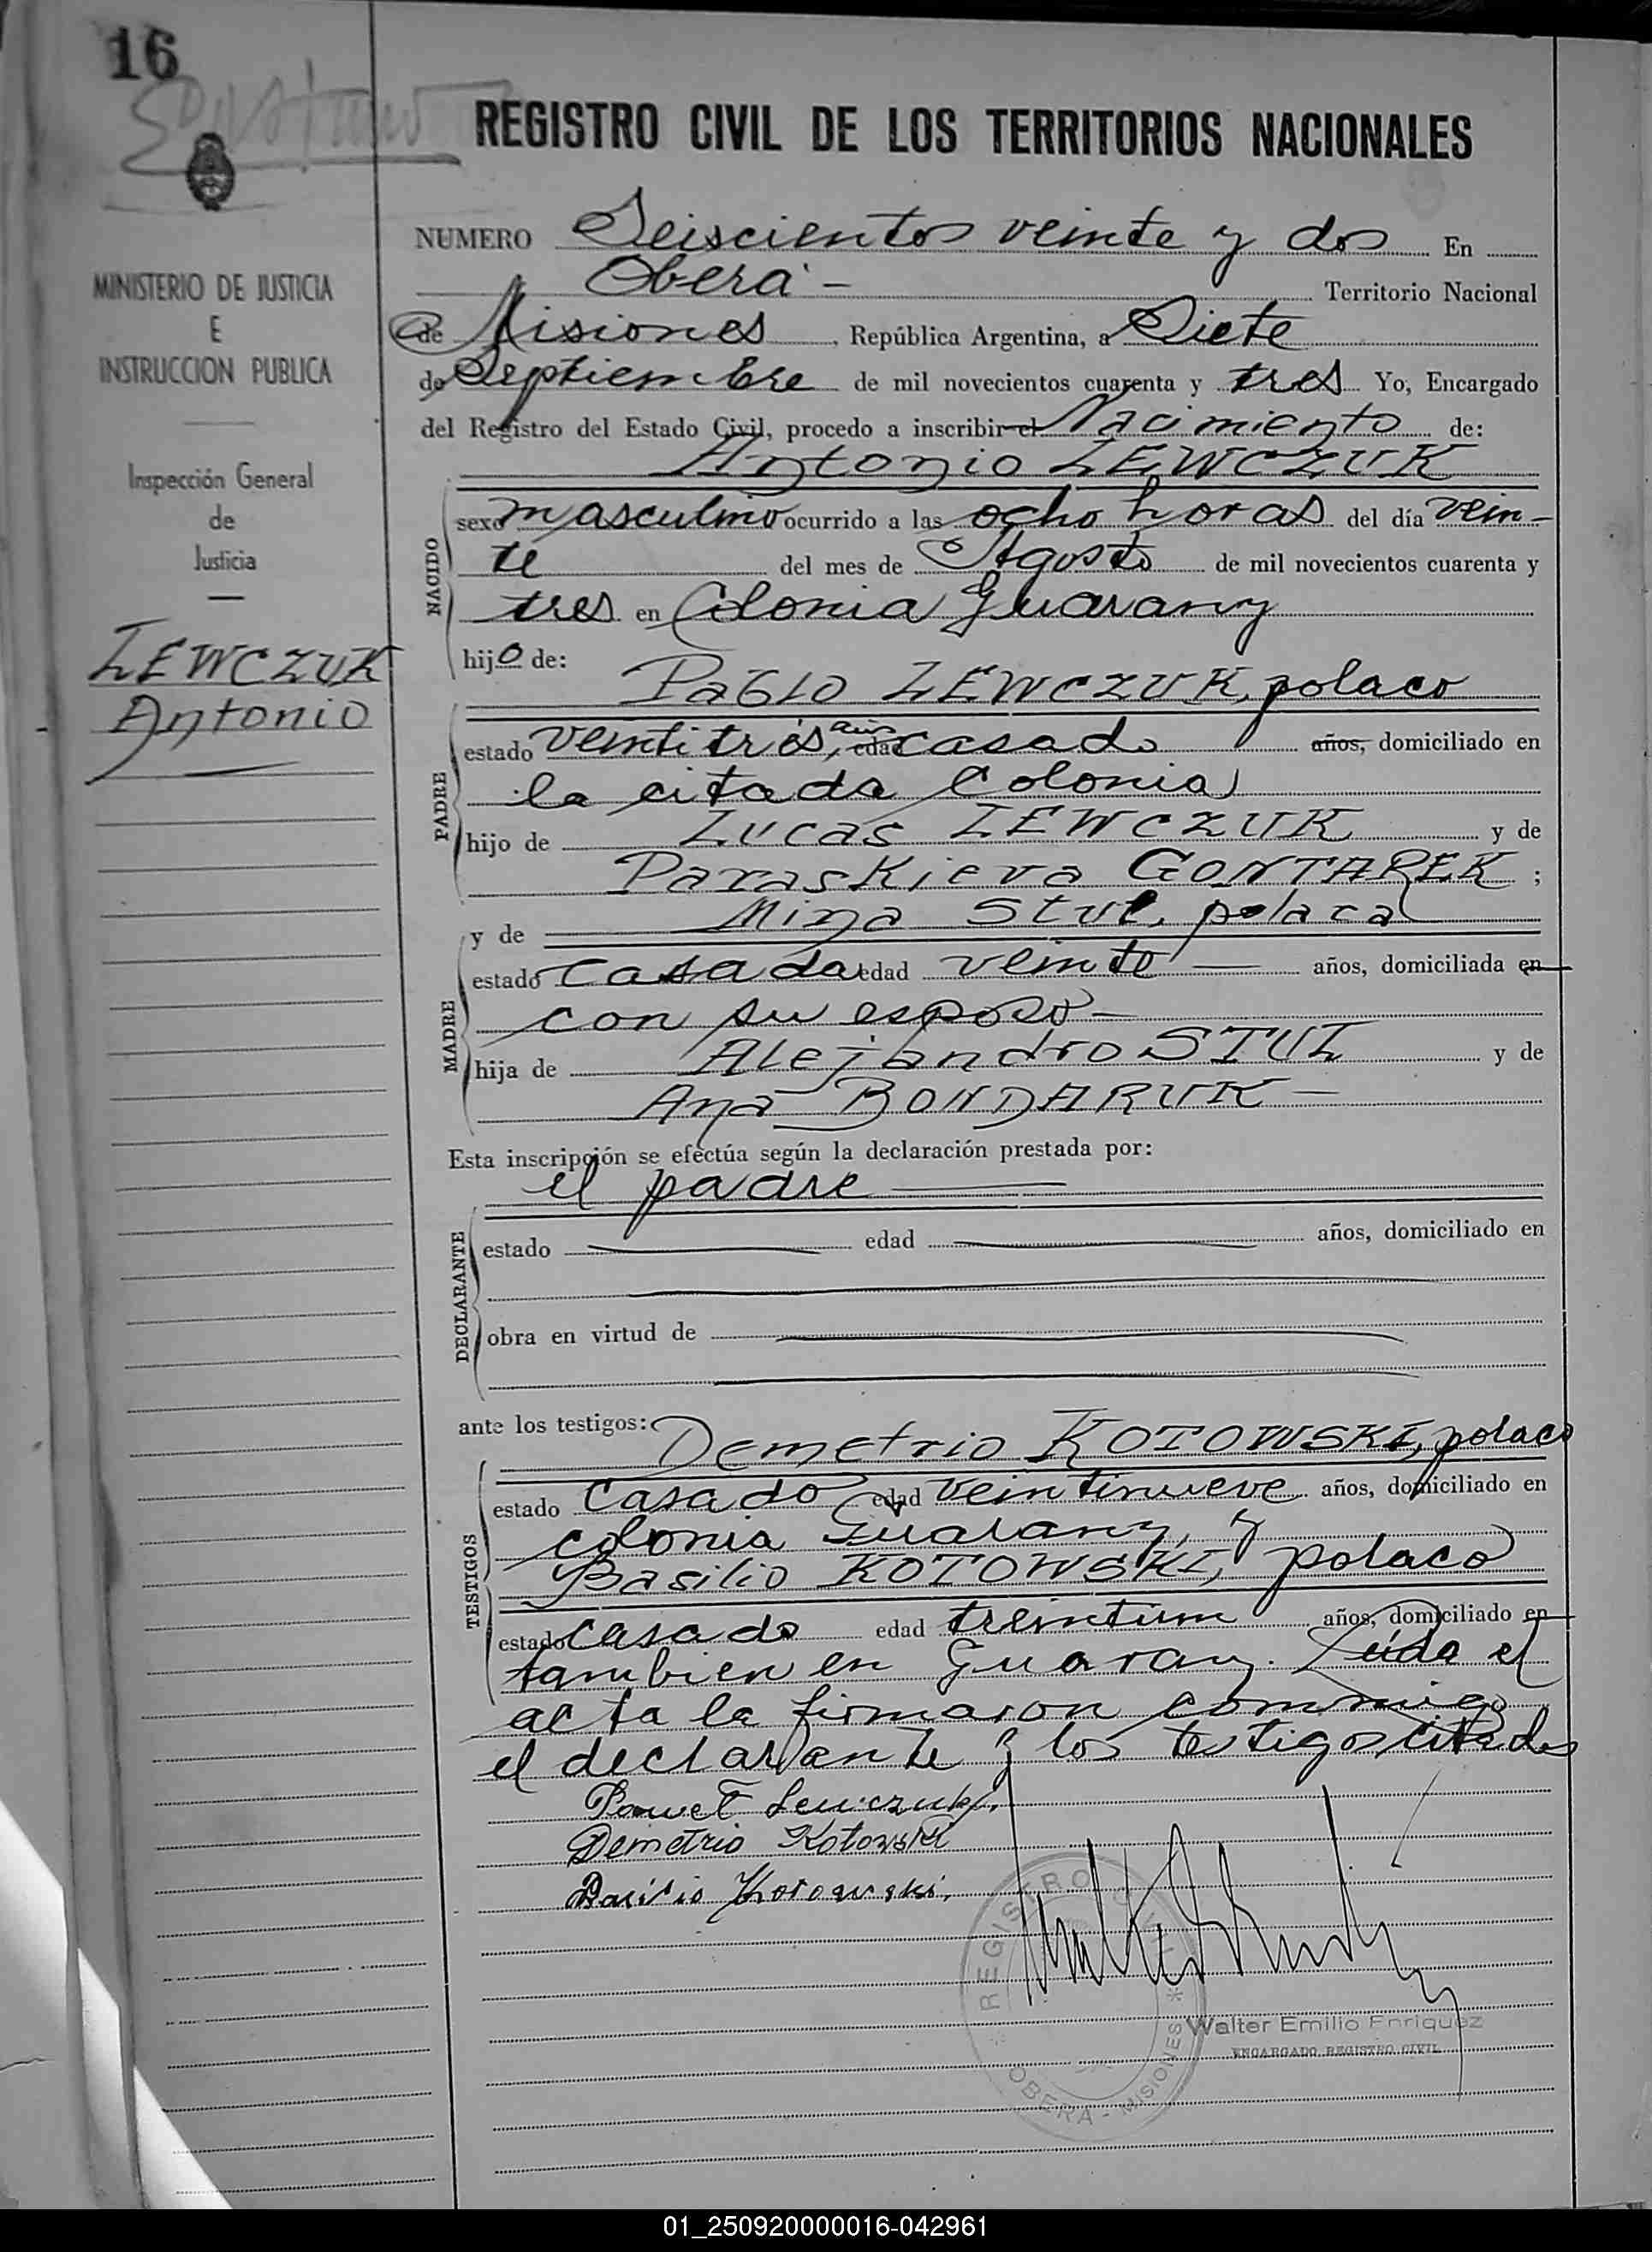 16
REGISTRO CIVIL DE LOS TERRITORIOS NACIONALES
MINISTERIO DE JUSTICIA
E
INSTRUCCION PUBLICA
Inspección General
de
Justicia
LEWCZUK
Antonio
NUMERO Seiscientos veinte y dos En
Oberá - Territorio Nacional
de Misiones, República Argentina, a Siete
de Septiembre de mil novecientos cuarenta y tres Yo, Encargado
del Registro del Estado Civil, procedo a inscribir el Nacimiento de:
Antonio LEWCZUK
NACIDO
sexo masculino ocurrido a las ocho horas del día vein-
te del mes de Agosto de mil novecientos cuarenta y
tres en Colonia Guarany
hijo de:
Pablo LEWCZUK, polaco
PADRE
estado veintitrés, edad casado años, domiciliado en
la citada Colonia
hijo de Lucas LEWCZUK y de
Paraskieva GONTAREK ;
y de Mina Stul, polaca
MADRE
estado casada edad veinte — años, domiciliada en
con su esposo -
hija de Alejandro STUL y de
Ana BONDARUK -
Esta inscripción se efectúa según la declaración prestada por:
el padre
DECLARANTE
estado edad años, domiciliado en
obra en virtud de
ante los testigos:
Demetrio KOTOWSKI, polaco
TESTIGOS
estado casado edad veintinueve años, domiciliado en
colonia Guarany, y
Basilio KOTOWSKI, polaco
estado casado edad treintiun años, domiciliado en
tambien en Guarany. Leída el
acta la firmaron conmigo
el declarante y los testigos citados
Paweł Lewczuk.
Demetrio Kotowski
Basilio Kotowski.
REGISTRO CIVIL * OBERA - MISIONES *
Walter Emilio Enriquez
ENCARGADO REGISTRO CIVIL
01_250920000016-042961